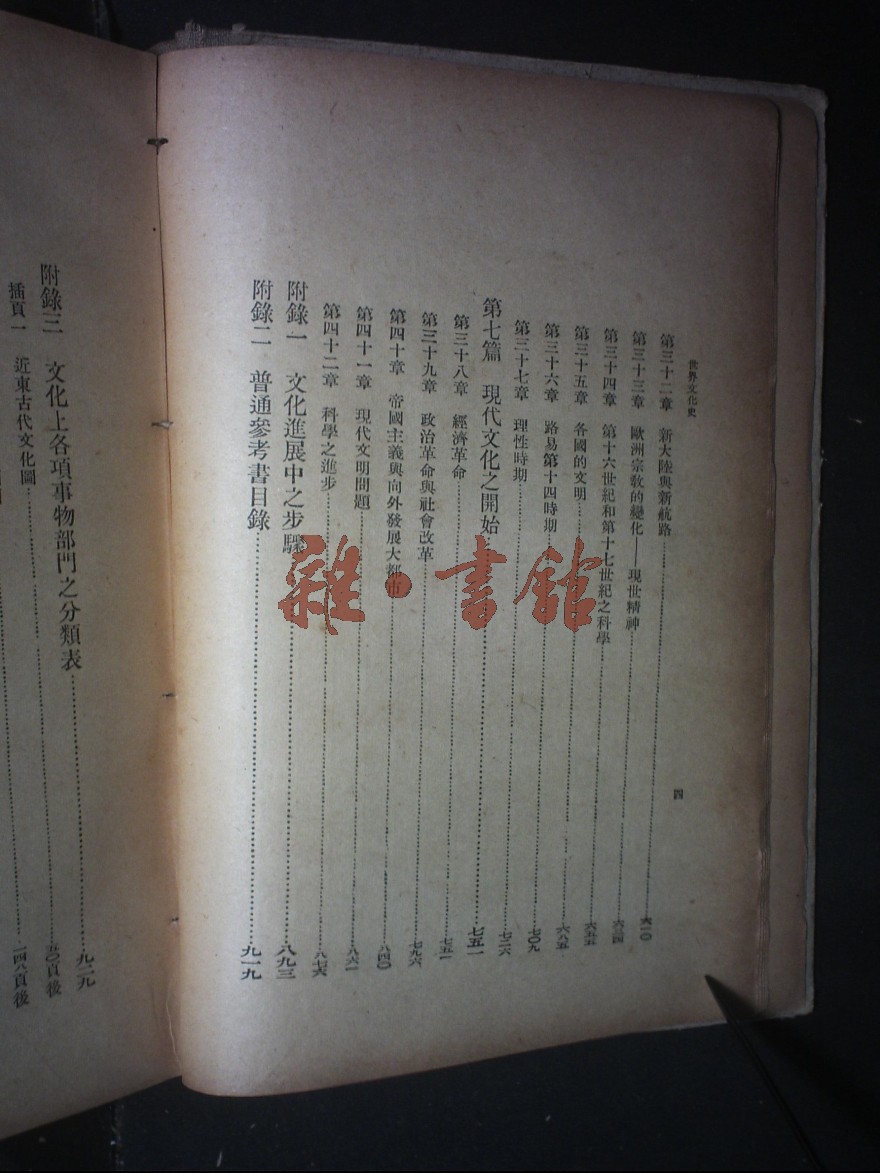 世界文化史
四
第三十二章 新大陸與新航路 六一〇
第三十三章 歐洲宗教的變化——現世精神
第三十四章 第十六世紀和第十七世紀之科學
第三十五章 各國的文明 六五五
第三十六章 路易第十四時期 六八五
第三十七章 理性時期 七〇九
第七篇 現代文化之開始 七五一
第三十八章 經濟革命 七五一
第三十九章 政治革命與社會改革 七九六
第四十章 帝國主義與向外發展大都市 八四〇
第四十一章 現代文明問題 八六一
第四十二章 科學之進步 八七六
附錄一 文化進展中之步驟 八九三
附錄二 普通參考書目錄 九一九
附錄三 文化上各項事物部門之分類表 九二九
插頁一 近東古代文化圖 五〇頁後
一四八頁後
雜·書館